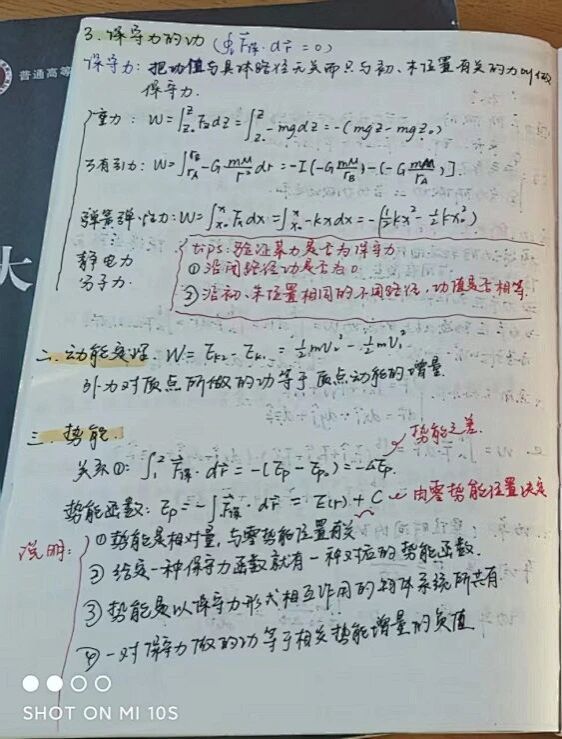 3. 保守力的功 (∮F⃗保·dr⃗ = 0)
保守力: 把功值与具体路径无关而只与初、末位置有关的力叫做
保守力.
普通高等
重力: W=∫_{Z₀}^{Z} F_z dz = ∫_{Z₀}^{Z} -mgdz = -(mgz - mgz₀)
万有引力: W=∫_{r_A}^{r_B} -G mM/r² dr = -[(-G mM/r_B) - (-G mM/r_A)].
弹簧弹性力: W=∫_{x₀}^{x} Fₓdx = ∫_{x₀}^{x} -kxdx = -(½kx² - ½kx₀²)
静电力
分子力.
tips: 验证某力是否为保守力
① 沿闭路径功是否为0
② 沿初、末位置相同的不同路径, 功值是否相等.
大
二. 动能定理 W = E_{k2} - E_{k1} = ½mV₂² - ½mV₁²
外力对质点所做的功等于质点动能的增量
三. 势能.
势能之差.
关系①: ∫₁² F⃗保·dr⃗ = -(Ep - Ep₀) = -ΔEp.
势能函数: Ep = -∫F⃗保·dr⃗ = E(r) + C 由零势能位置决定
说明:
① 势能是相对量, 与零势能位置有关
② 给定一种保守力函数就有一种对应的势能函数.
③ 势能是以保守力形式相互作用的物体系统所共有
④ 一对保守力做的功等于相关势能增量的负值
SHOT ON MI 10S